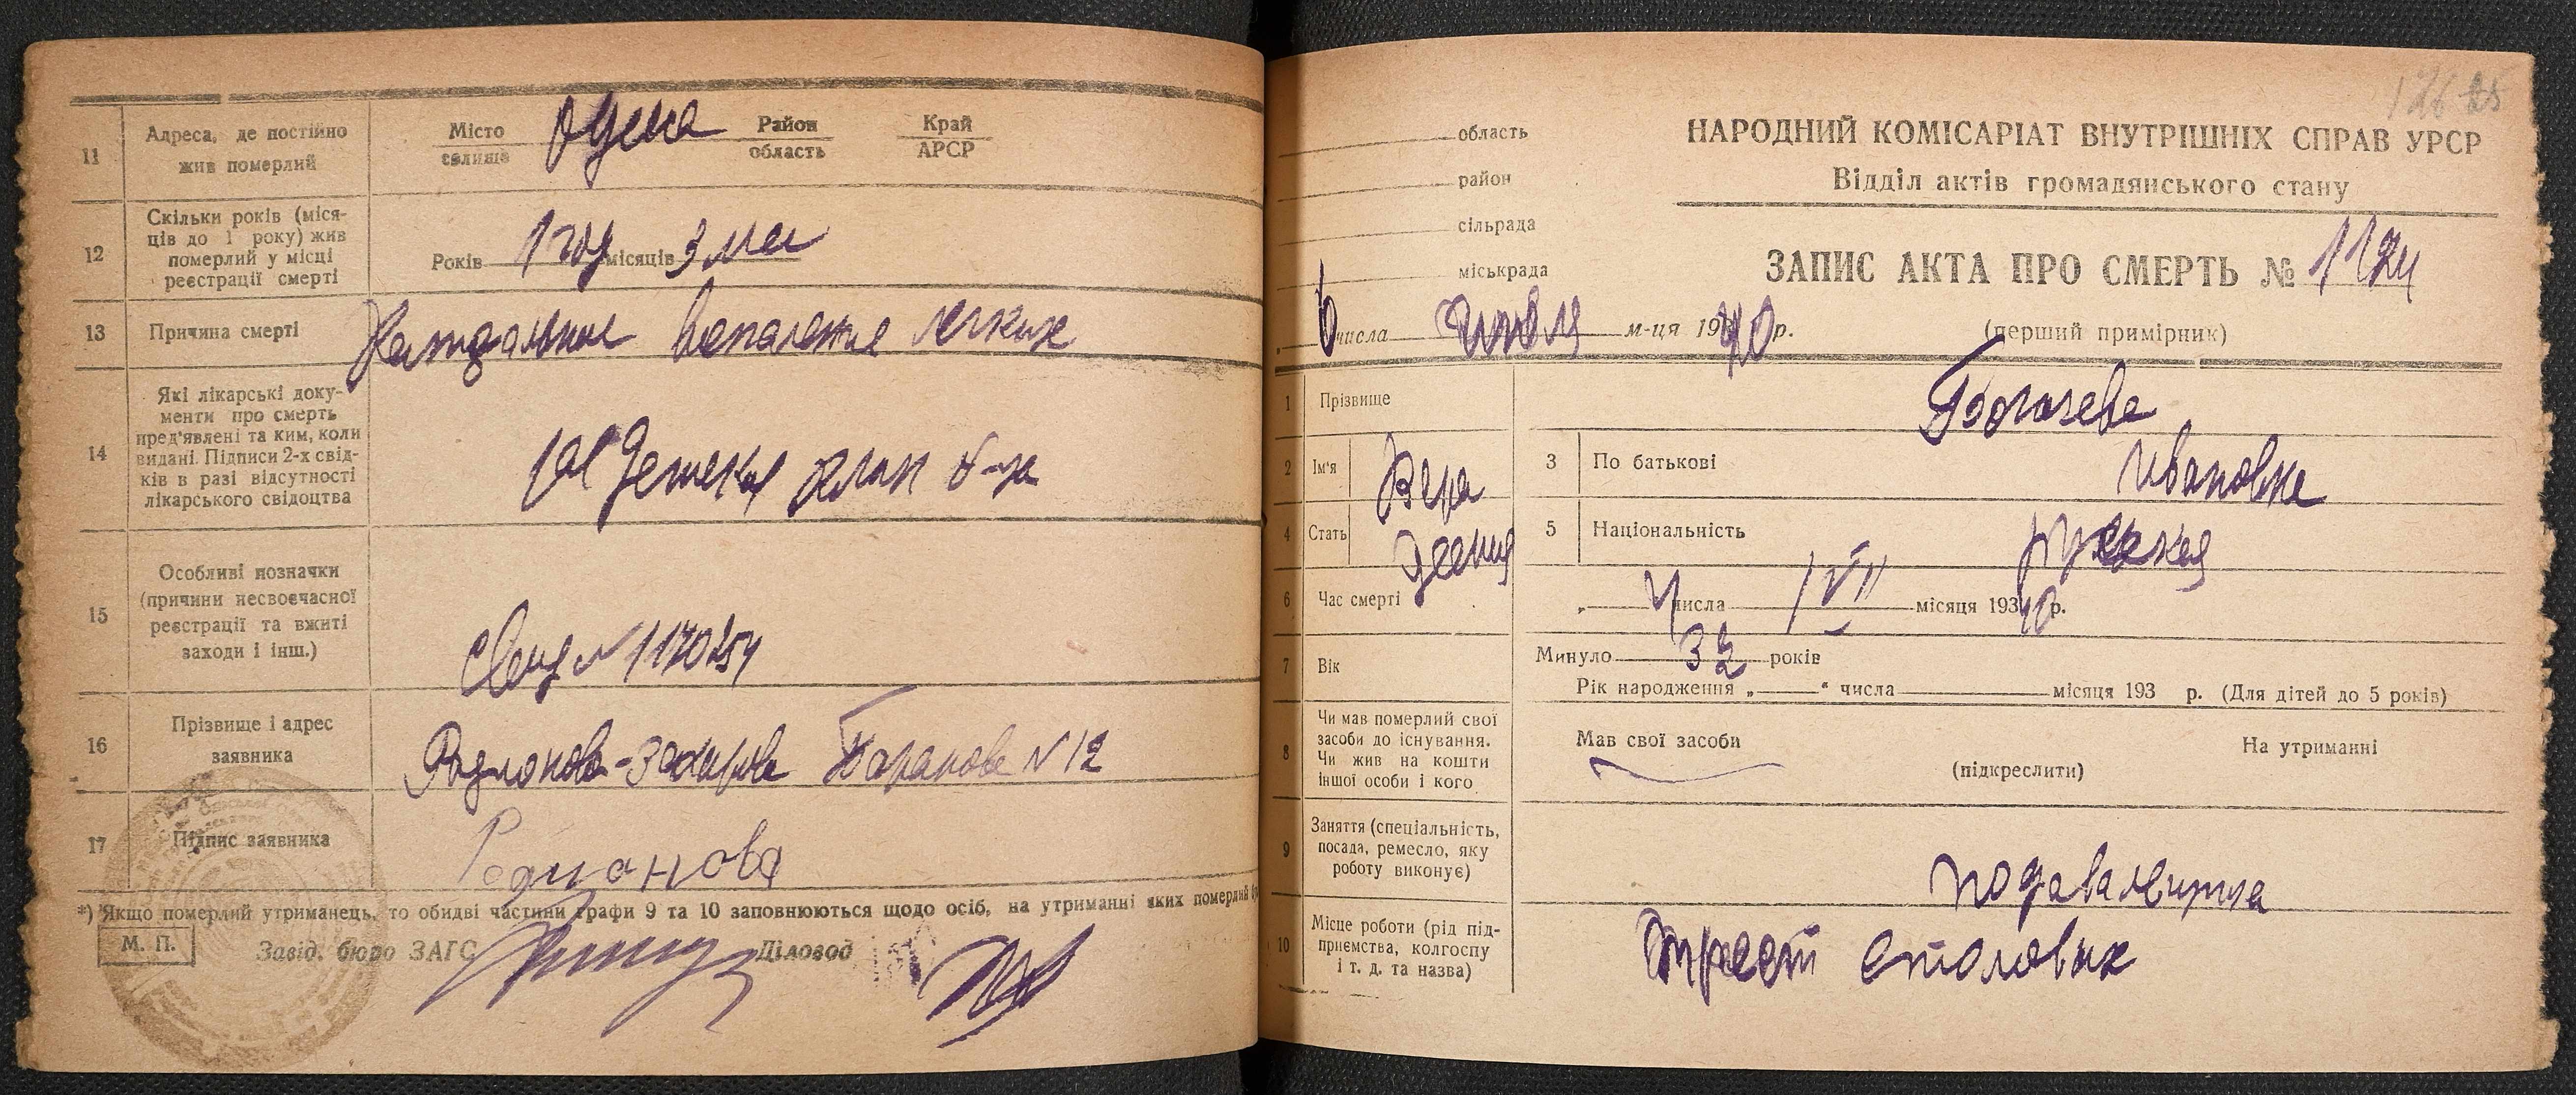 11
Адреса, де постійно
жив померлий
Місто
селище
Одесса
Район
область
Край
АРСР
12
Скільки років (міся-
ців до 1 року) жив
померлий у місці
реєстрації смерті
Років 1 год місяців 3 мес
13
Причина смерті
воспаление легких
14
Які лікарські доку-
менти про смерть
пред'явлені та ким, коли
видані. Підписи 2-х свід-
ків в разі відсутності
лікарського свідоцтва
б-ца
15
Особливі позначки
(причини несвоєчасної
реєстрації та вжиті
заходи і інш.)
№ 1170254
16
Прізвище і адрес
заявника
Баранова № 12
17
Підпис заявника
Родионова
*) Якщо померлий утриманець, то обидві частини графи 9 та 10 заповнюються щодо осіб, на утриманні яких померлий
М. П.
Завід. бюро ЗАГС
Діловод
126
область
район
сільрада
міськрада
6 числа июля м-ця 1940 р.
НАРОДНИЙ КОМІСАРІАТ ВНУТРІШНІХ СПРАВ УРСР
Відділ актів громадянського стану
ЗАПИС АКТА ПРО СМЕРТЬ № 1174
(перший примірник)
1
Прізвище
Богачева
2
Ім'я
Вера
3
По батькові
Ивановна
4
Стать
5
Національність
русская
6
Час смерті
„ 4 числа VII місяця 1940 р.
7
Вік
Минуло 32 років
Рік народження „ “ числа місяця 193 р. (Для дітей до 5 років)
8
Чи мав померлий свої
засоби до існування.
Чи жив на кошти
іншої особи і кого
Мав свої засоби
На утриманні
(підкреслити)
9
Заняття (спеціальність,
посада, ремесло, яку
роботу виконує)
подавальщица
10
Місце роботи (рід під-
приємства, колгоспу
і т. д. та назва)
Трест столовых